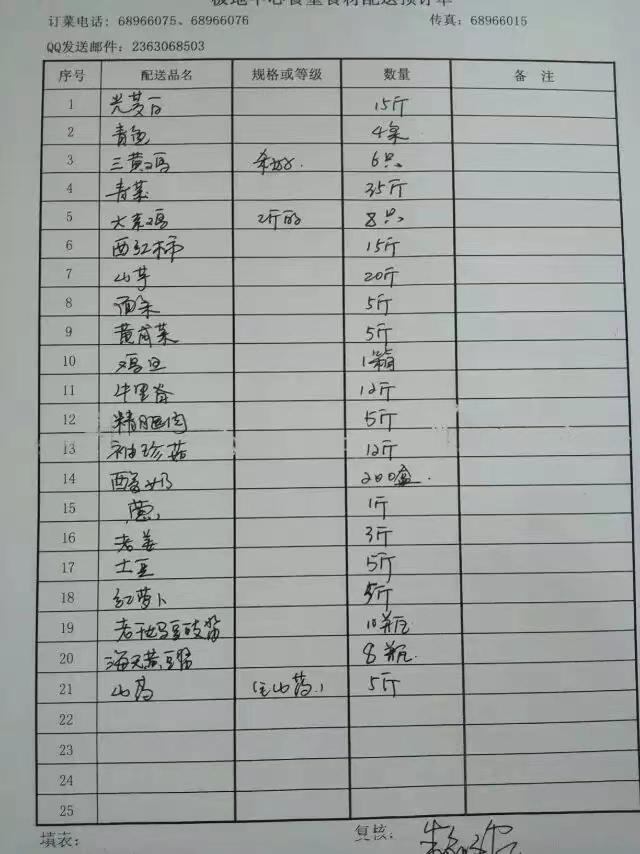 极地中心食堂食材配送预订单
订菜电话: 68966075、68966076 传真: 68966015
QQ发送邮件: 2363068503
序号 配送品名 规格或等级 数量 备 注
1 茭白 15斤
2 青鱼 4条
3 三黄鸡 杀好. 6只
4 青菜 35斤
5 大草鸡 2斤的 8只
6 西红柿 15斤
7 山芋 20斤
8 面条 5斤
9 黄花菜 5斤
10 鸡蛋 1箱
11 牛里脊 12斤
12 精腿肉 5斤
13 袖珍菇 12斤
14 酸奶 200盒.
15 葱 1斤
16 老姜 3斤
17 土豆 5斤
18 红萝卜 5斤
19 老干妈豆豉酱 10瓶
20 海天黄豆酱 8瓶.
21 山药 山药 5斤
22
23
24
25
填表: 复核: